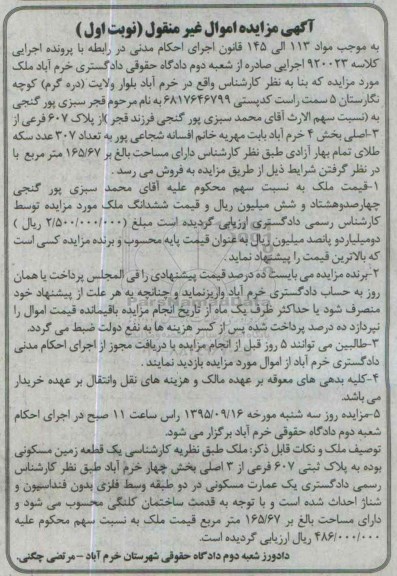 آگهی مزایده اموال غیر منقول (نوبت اول)
به موجب مواد ۱۱۳ الی ۱۴۵ قانون اجرای احکام مدنی در رابطه با پرونده اجرایی
کلاسه ۹۲۰۰۲۳ اجرایی صادره از شعبه دوم دادگاه حقوقی دادگستری خرم آباد ملک
مورد مزایده که بنا به نظر کارشناس واقع در خرم آباد بلوار ولایت (دره گرم) کوچه
نگارستان ۵ سمت راست کدپستی ۶۸۱۷۶۴۶۷۹۹ به نام مرحوم قجر سبزی پور گنجی
به (نسبت سهم الارث آقای محمد سبزی پور گنجی فرزند قجر) از پلاک ۶۰۷ فرعی از
۳-اصلی بخش ۴ خرم آباد بابت مهریه خانم افسانه شجاعی پور به تعداد ۳۰۷ عدد سکه
طلای تمام بهار آزادی طبق نظر کارشناس دارای مساحت بالغ بر ۱۶۵/۶۷ متر مربع با
در نظر گرفتن شرایط ذیل از طریق مزایده به فروش می رسد .
۱-قیمت ملک به نسبت سهم محکوم علیه آقای محمد سبزی پور گنجی
چهارصدوهشتاد و شش میلیون ریال و قیمت ششدانگ ملک مورد مزایده توسط
کارشناس رسمی دادگستری ارزیابی گردیده است مبلغ (۲/۵۰۰/۰۰۰/۰۰۰ ریال )
دومیلیاردو پانصد میلیون ریال به عنوان قیمت پایه محسوب و برنده مزایده کسی است
که بالاترین قیمت را پیشنهاد نماید.
۲-برنده مزایده می بایست ده درصد قیمت پیشنهادی را فی المجلس پرداخت یا همان
روز به حساب دادگستری خرم آباد واریز نماید و چنانچه به هر علت از پیشنهاد خود
منصرف شود یا حداکثر ظرف یک ماه از تاریخ انجام مزایده باقیمانده قیمت اموال را
نپردازد ده درصد پرداخت شده پس از کسر هزینه ها به نفع دولت ضبط می گردد.
۳-طالبین می توانند ۵ روز قبل از انجام مزایده با دریافت مجوز از اجرای احکام مدنی
دادگستری خرم آباد از اموال مورد مزایده بازدید نمایند .
۴-کلیه بدهی های معوقه بر عهده مالک و هزینه های نقل وانتقال بر عهده خریدار
می باشد.
۵-مزایده روز سه شنبه مورخه ۱۳۹۵/۰۹/۱۶ راس ساعت ۱۱ صبح در اجرای احکام
شعبه دوم دادگاه حقوقی خرم آباد برگزار می شود.
توصیف ملک و نکات قابل ذکر: ملک طبق نظریه کارشناسی یک قطعه زمین مسکونی
بوده به پلاک ثبتی ۶۰۷ فرعی از ۳ اصلی بخش چهار خرم آباد طبق نظر کارشناس
رسمی دادگستری یک عمارت مسکونی در دو طبقه وسط فلزی بدون فنداسیون و
شناژ احداث شده است و با توجه به قدمت ساختمان کلنگی محسوب می شود و
دارای مساحت بالغ بر ۱۶۵/۶۷ متر مربع قیمت ملک به نسبت سهم محکوم علیه
۴۸۶/۰۰۰/۰۰۰ ریال ارزیابی گردیده است.
دادورز شعبه دوم دادگاه حقوقی شهرستان خرم آباد – مرتضی چگنی.